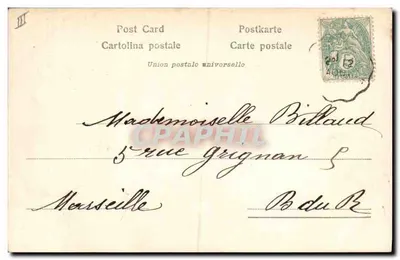 III
Post Card Postkarte
Cartolina postale Carte postale
Union postale universelle
Mademoiselle Billaud
CPAPHIL
5 rue Grignan 5
Marseille B du R